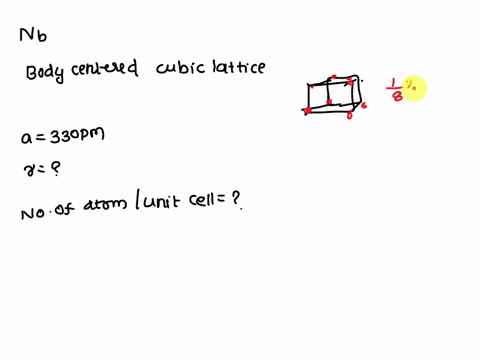 Nb
Body centered cubic lattice
1/8 %
a = 330pm
r = ?
No. of atom / unit cell = ?